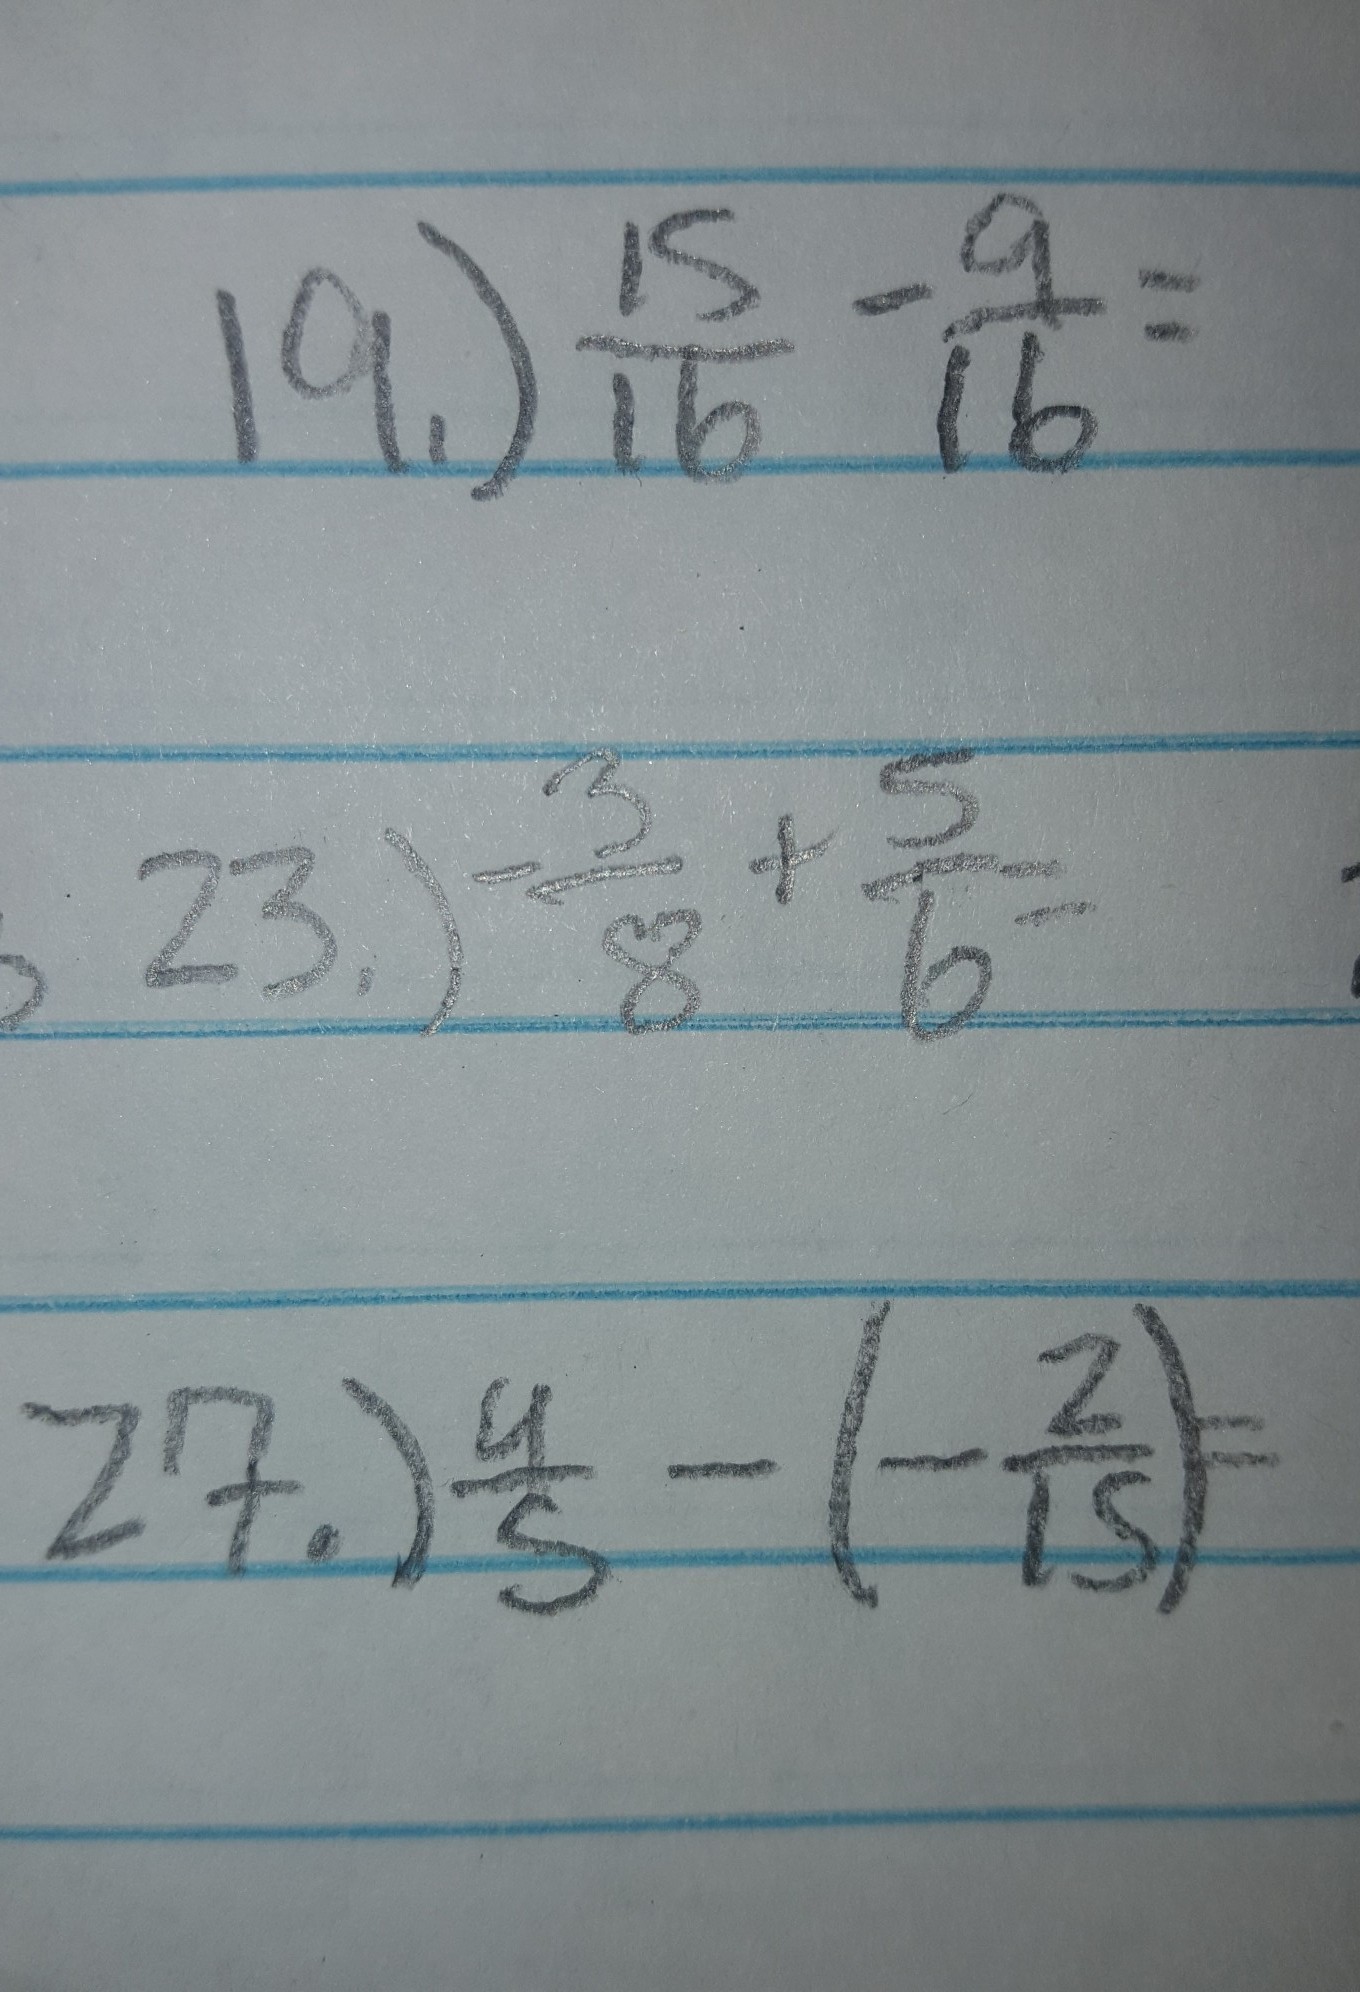 19.) 15/16 - 9/16 =
23.) -3/8 + 5/6 =
27.) 4/5 - (-2/15) =